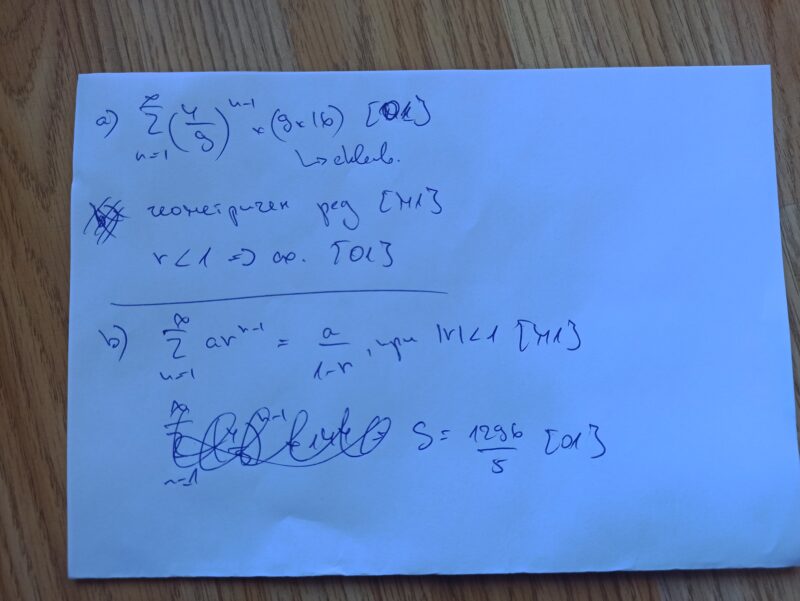 a) ∞ Σ n=1 (4/9)^(n-1) × (9×16) [O1]
↳ еквив.
геометричен ред [M1]
r < 1 => сх. [O1]
b) ∞ Σ n=1 ar^(n-1) = a/(1-r), при |r|<1 [M1]
S = 1296/5 [O1]